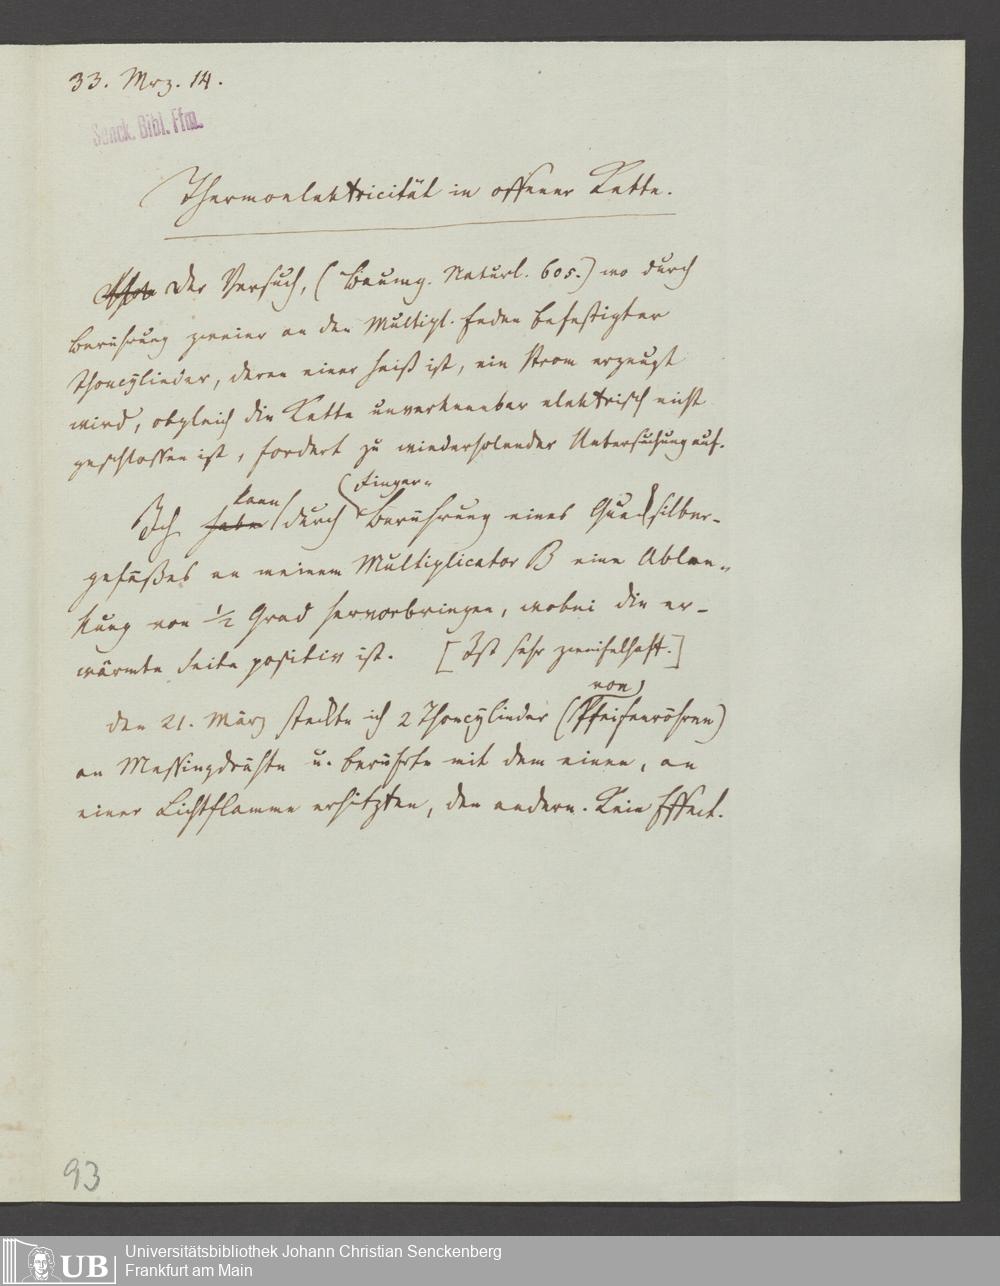 33. Mrz. 14.
Senck. Bibl. Ffm.
Thermoelektricität in offener Kette.
Der Versuch, (Baumg. Naturl. 605.) wo durch
Berührung zweier an den Multipl. Enden befestigter
Thoncÿlinder, deren einer heiß ist, ein Strom erzeugt
wird, obgleich die Kette unverkennbar elektrisch nicht
geschlossen ist, fordert zu wiederholender Untersuchung auf.
kann Finger-
Ich habe durch Berührung eines Quecksilber-
gefäßes an meinem Multiplicator B eine Ablen-
kung von ½ Grad hervorbringen, wobei die er-
wärmte Seite positiv ist. [Ist sehr zweifelhaft.]
von
den 21. März steckte ich 2 Thoncÿlinder (Pfeifenröhren)
an Messingdrähte u. berührte mit dem einen, an
einer Lichtflamme erhitzten, den andern. Kein Effect.
93
UB
Universitätsbibliothek Johann Christian Senckenberg
Frankfurt am Main